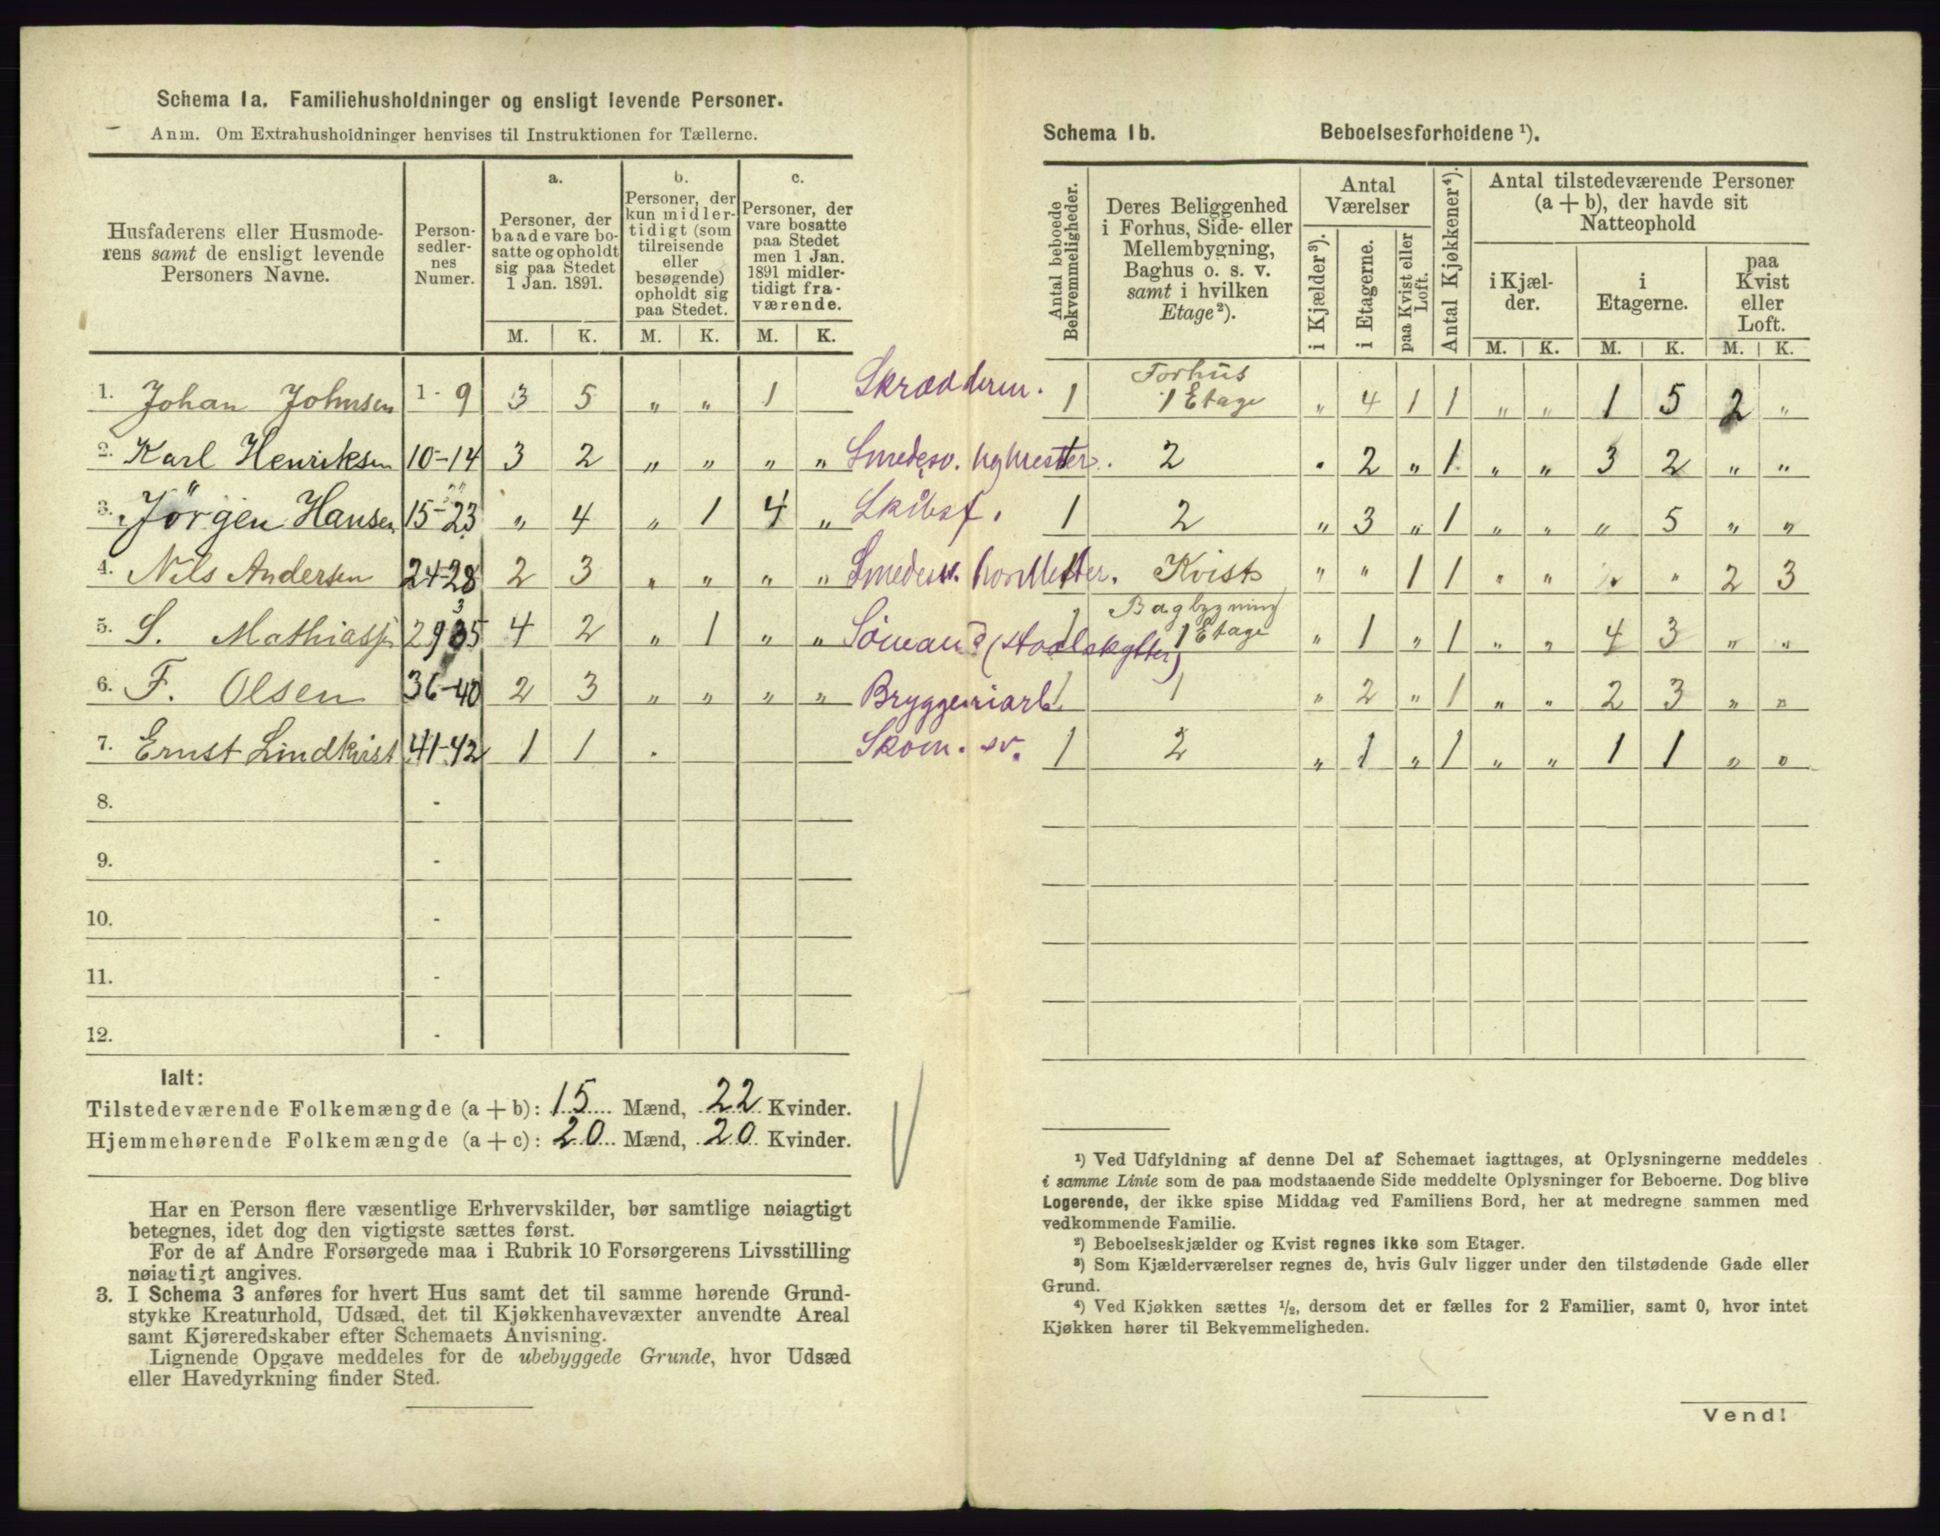 Schema 1a. Familiehusholdninger og ensligt levende Personer.
Anm. Om Extrahusholdninger henvises til Instruktionen for Tællerne.
Husfaderens eller Husmoderens samt de ensligt levende Personers Navne.
Personsedlernes Numer.
a.
Personer, der baade vare bosatte og opholdt sig paa Stedet 1 Jan. 1891.
b.
Personer, der kun midlertidigt (som tilreisende eller besøgende) opholdt sig paa Stedet.
c.
Personer, der vare bosatte paa Stedet men 1 Jan. 1891 midlertidigt fraværende.
M. K. M. K. M. K.
1. Johan Johnsen 1-9 3 5 „ „ 1 Skrædderm.
2. Karl Henriksen 10-14 3 2 „ „ „ „ Smedesv.
3. Jörgen Hansen 15-23 „ 4 „ 1 4 „ Skibsf.
4. Nils Andersen 24-28 2 3 „ „ „ „ Smedesv.
5. S. Mathias 29 35 4 2 „ 1 „ „ Sömand
6. F. Olsen 36-40 2 3 „ „ „ „ Bryggeriarb.
7. Ernst Lindkvist 41-42 1 1 . Skom. sv.
8. -
9. -
10. -
11. -
12. -
Ialt:
Tilstedeværende Folkemængde (a + b): 15 Mænd, 22 Kvinder.
Hjemmehørende Folkemængde (a + c): 20 Mænd, 20 Kvinder.
Har en Person flere væsentlige Erhvervskilder, bør samtlige nøiagtigt
betegnes, idet dog den vigtigste sættes først.
For de af Andre Forsørgede maa i Rubrik 10 Forsørgerens Livsstilling
nøiagtigt angives.
3. I Schema 3 anføres for hvert Hus samt det til samme hørende Grund-
stykke Kreaturhold, Udsæd, det til Kjøkkenhavevæxter anvendte Areal
samt Kjøreredskaber efter Schemaets Anvisning.
Lignende Opgave meddeles for de ubebyggede Grunde, hvor Udsæd
eller Havedyrkning finder Sted.
Schema 1b. Beboelsesforholdene ¹).
Antal beboede Bekvemmeligheder.
Deres Beliggenhed i Forhus, Side- eller Mellembygning, Baghus o. s. v. samt i hvilken Etage²).
Antal Værelser
i Kjælder³).
i Etagerne.
paa Kvist eller Loft.
Antal Kjøkkener⁴).
Antal tilstedeværende Personer (a + b), der havde sit Natteophold
i Kjælder.
i Etagerne.
paa Kvist eller Loft.
M. K. M. K. M. K.
1 Forhus 1 Etage „ 4 1 1 „ „ 1 5 2 „
1 2 . 2 „ 1 „ „ 3 2 „ „
1 2 „ 3 „ 1 „ „ „ 5 „ „
1 Kvist „ „ 1 1 „ „ „ „ 2 3
1 Bagbygning 1 Etage „ 1 „ 1 „ „ 4 3 „ „
1 1 „ 2 „ 1 „ „ 2 3 „ „
1 2 „ 1 „ 1 „ „ 1 1 „ „
¹) Ved Udfyldning af denne Del af Schemaet iagttages, at Oplysningerne meddeles
i samme Linie som de paa modstaaende Side meddelte Oplysninger for Beboerne. Dog blive
Logerende, der ikke spise Middag ved Familiens Bord, her at medregne sammen med
vedkommende Familie.
²) Beboelseskjælder og Kvist regnes ikke som Etager.
³) Som Kjælderværelser regnes de, hvis Gulv ligger under den tilstødende Gade eller
Grund.
⁴) Ved Kjøkken sættes ½, dersom det er fælles for 2 Familier, samt 0, hvor intet
Kjøkken hører til Bekvemmeligheden.
Vend!